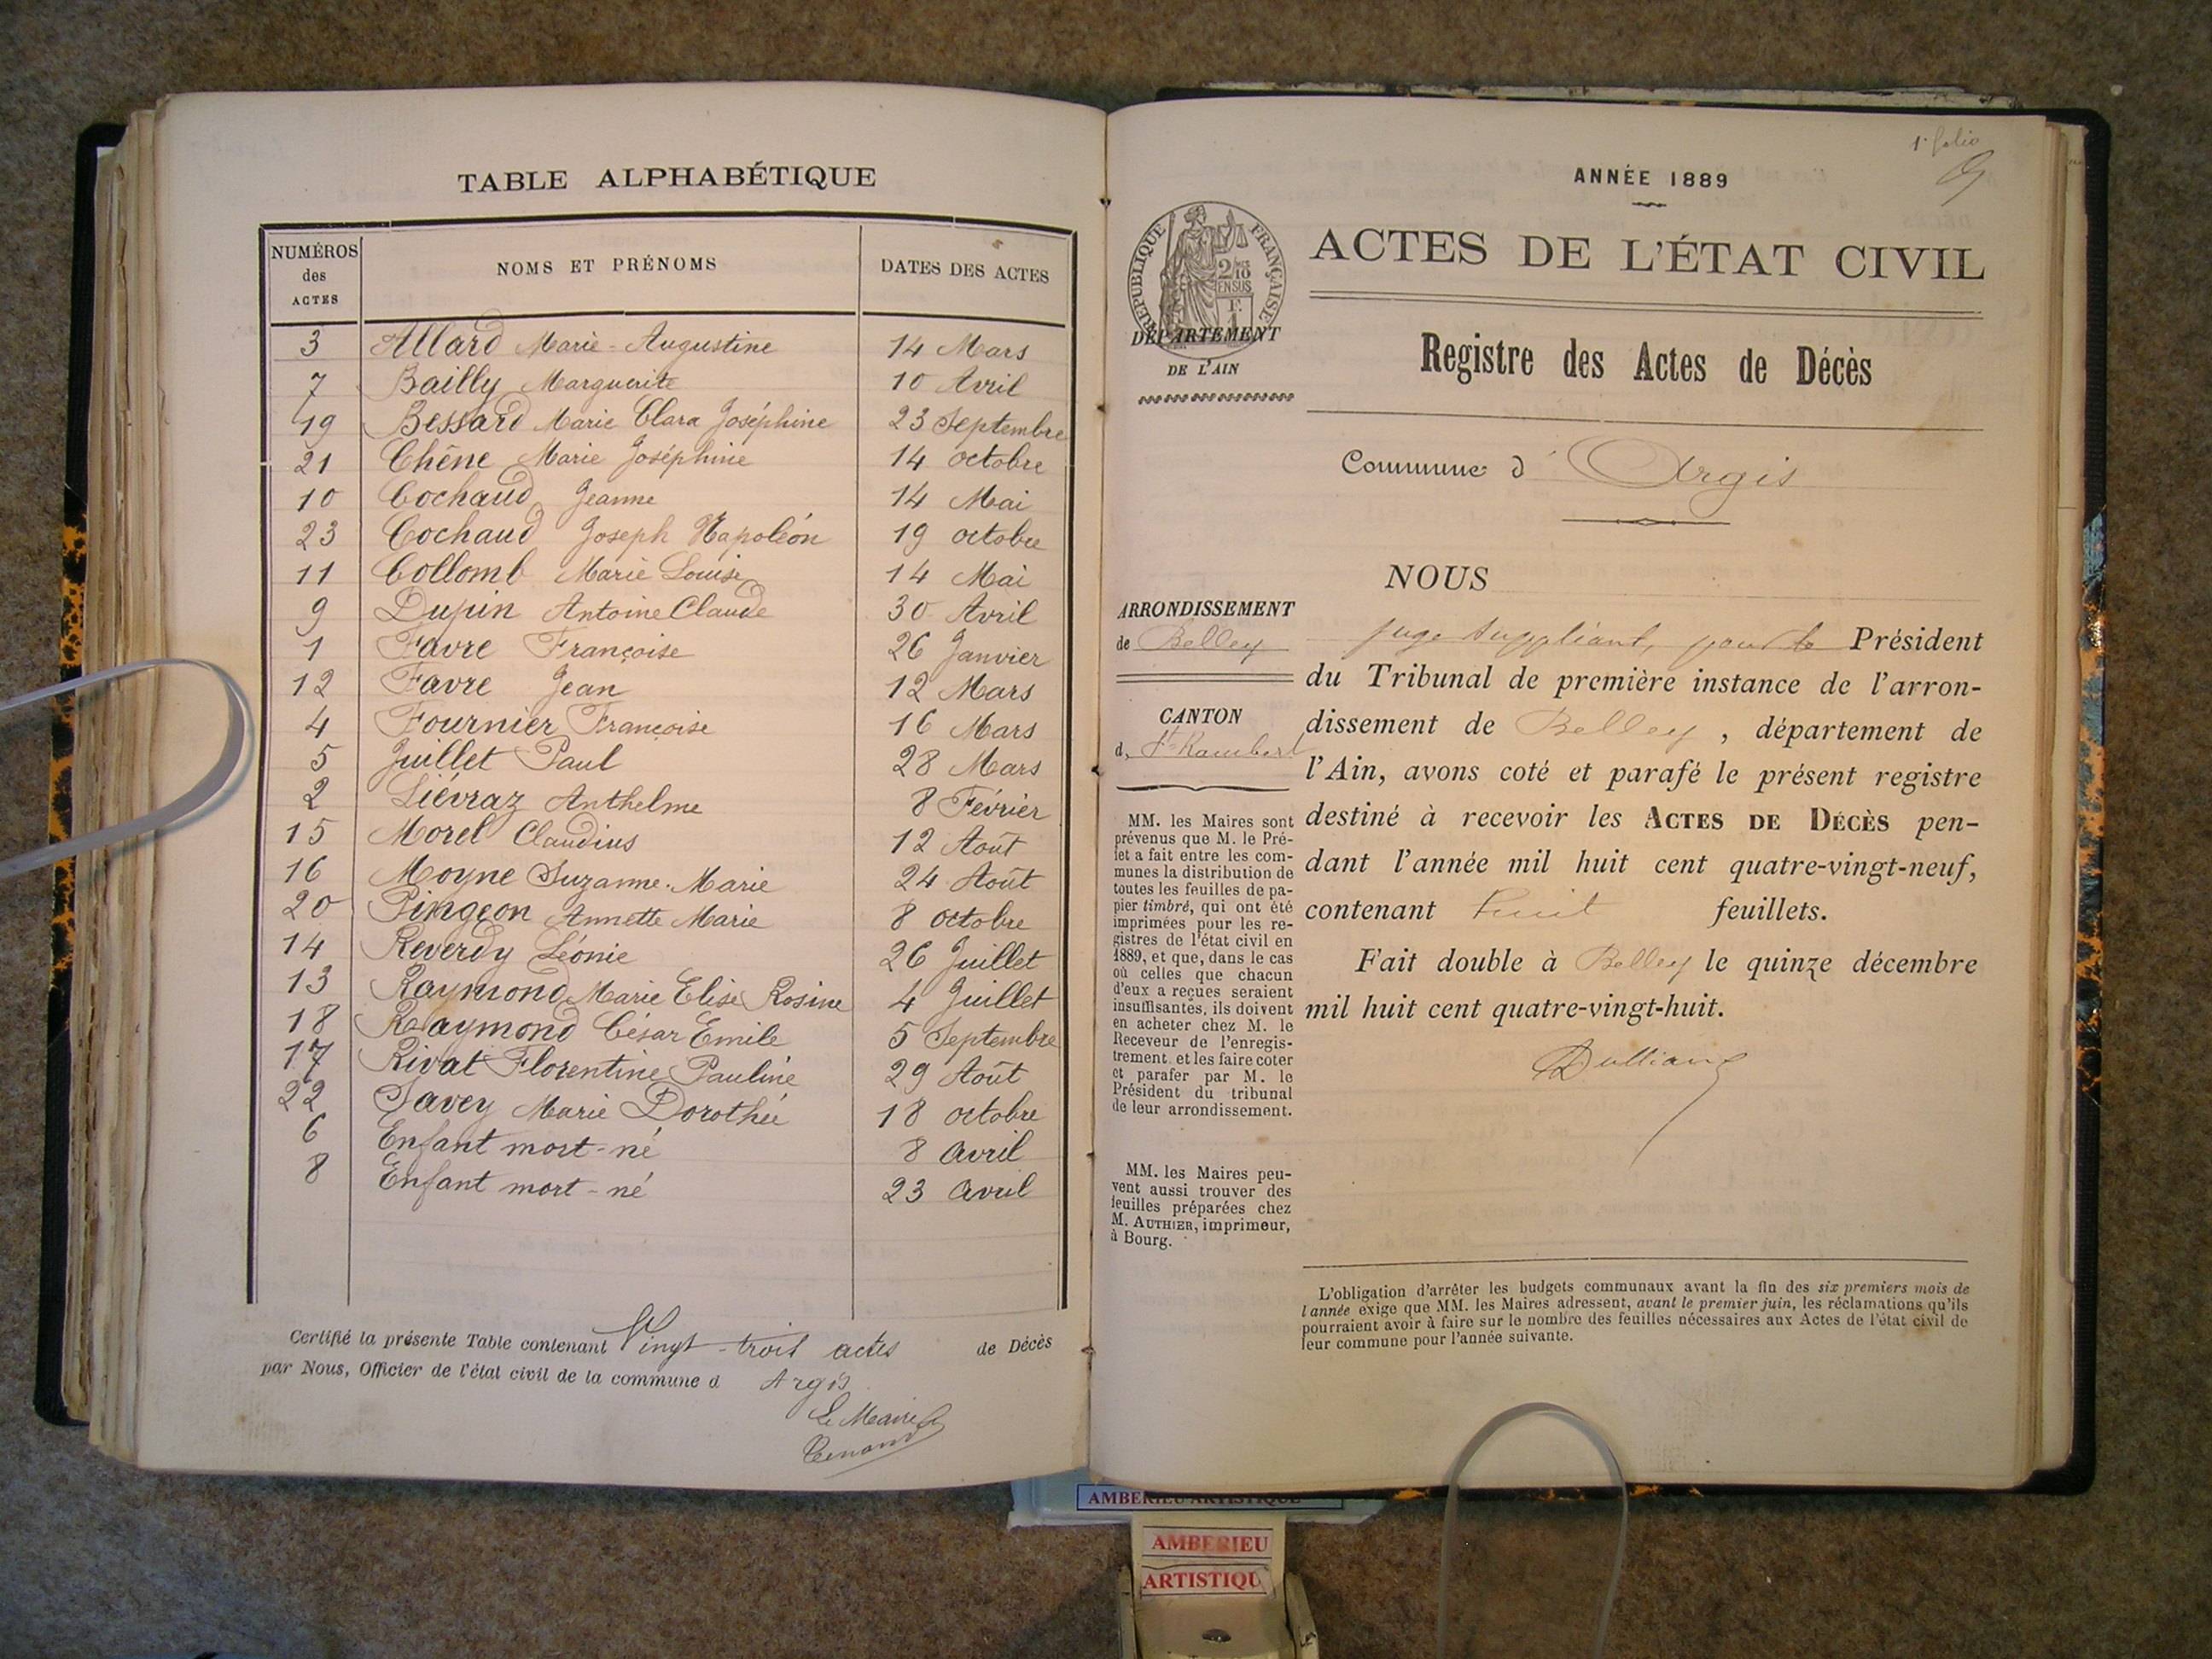 TABLE ALPHABÉTIQUE
NUMÉROS des ACTES NOMS ET PRÉNOMS DATES DES ACTES
3 Allard Marie-Augustine 14 Mars
7 Bailly Marguerite 10 Avril
19 Bessard Marie Clara Joséphine 23 Septembre
21 Chêne Marie Joséphine 14 octobre
10 Cochaud Jeanne 14 Mai
23 Cochaud Joseph Napoléon 19 octobre
11 Collomb Marie Louise 14 Mai
9 Dupin Antoine Claude 30 Avril
1 Favre Françoise 26 Janvier
12 Favre Jean 12 Mars
4 Fournier Françoise 16 Mars
5 Juillet Paul 28 Mars
2 Liévraz Anthelme 8 Février
15 Morel Claudius 12 Août
16 Moyne Suzanne-Marie 24 Août
20 Pingeon Annette Marie 8 octobre
14 Reverdy Léonie 26 Juillet
13 Raymond Marie Elise Rosine 4 Juillet
18 Raymond César Emile 5 Septembre
17 Rivat Florentine Pauline 29 Août
22 Savey Marie Dorothée 18 octobre
6 Enfant mort-né 8 avril
8 Enfant mort-né 23 avril
Certifié la présente Table contenant Vingt-trois actes de Décès
par Nous, Officier de l'état civil de la commune d Argis
Le Maire
1er folio
ANNÉE 1889
RÉPUBLIQUE FRANÇAISE
2/10 EN SUS
F. 1
ACTES DE L'ÉTAT CIVIL
DÉPARTEMENT
DE L'AIN
Registre des Actes de Décès
Commune d' Argis
ARRONDISSEMENT
de Belley
CANTON
de St Rambert
MM. les Maires sont
prévenus que M. le Pré-
fet a fait entre les com-
munes la distribution de
toutes les feuilles de pa-
pier timbré, qui ont été
imprimées pour les re-
gistres de l'état civil en
1889, et que, dans le cas
où celles que chacun
d'eux a reçues seraient
insuffisantes, ils doivent
en acheter chez M. le
Receveur de l'enregis-
trement et les faire coter
et parafer par M. le
Président du tribunal
de leur arrondissement.
MM. les Maires peu-
vent aussi trouver des
feuilles préparées chez
M. AUTHIER, imprimeur,
à Bourg.
NOUS
juge suppléant, pour le Président
du Tribunal de première instance de l'arron-
dissement de Belley, département de
l'Ain, avons coté et parafé le présent registre
destiné à recevoir les ACTES DE DÉCÈS pen-
dant l'année mil huit cent quatre-vingt-neuf,
contenant huit feuillets.
Fait double à Belley le quinze décembre
mil huit cent quatre-vingt-huit.
L'obligation d'arrêter les budgets communaux avant la fin des six premiers mois de
l'année exige que MM. les Maires adressent, avant le premier juin, les réclamations qu'ils
pourraient avoir à faire sur le nombre des feuilles nécessaires aux Actes de l'état civil de
leur commune pour l'année suivante.
AMBERIEU ARTISTIQUE
AMBERIEU
ARTISTIQU